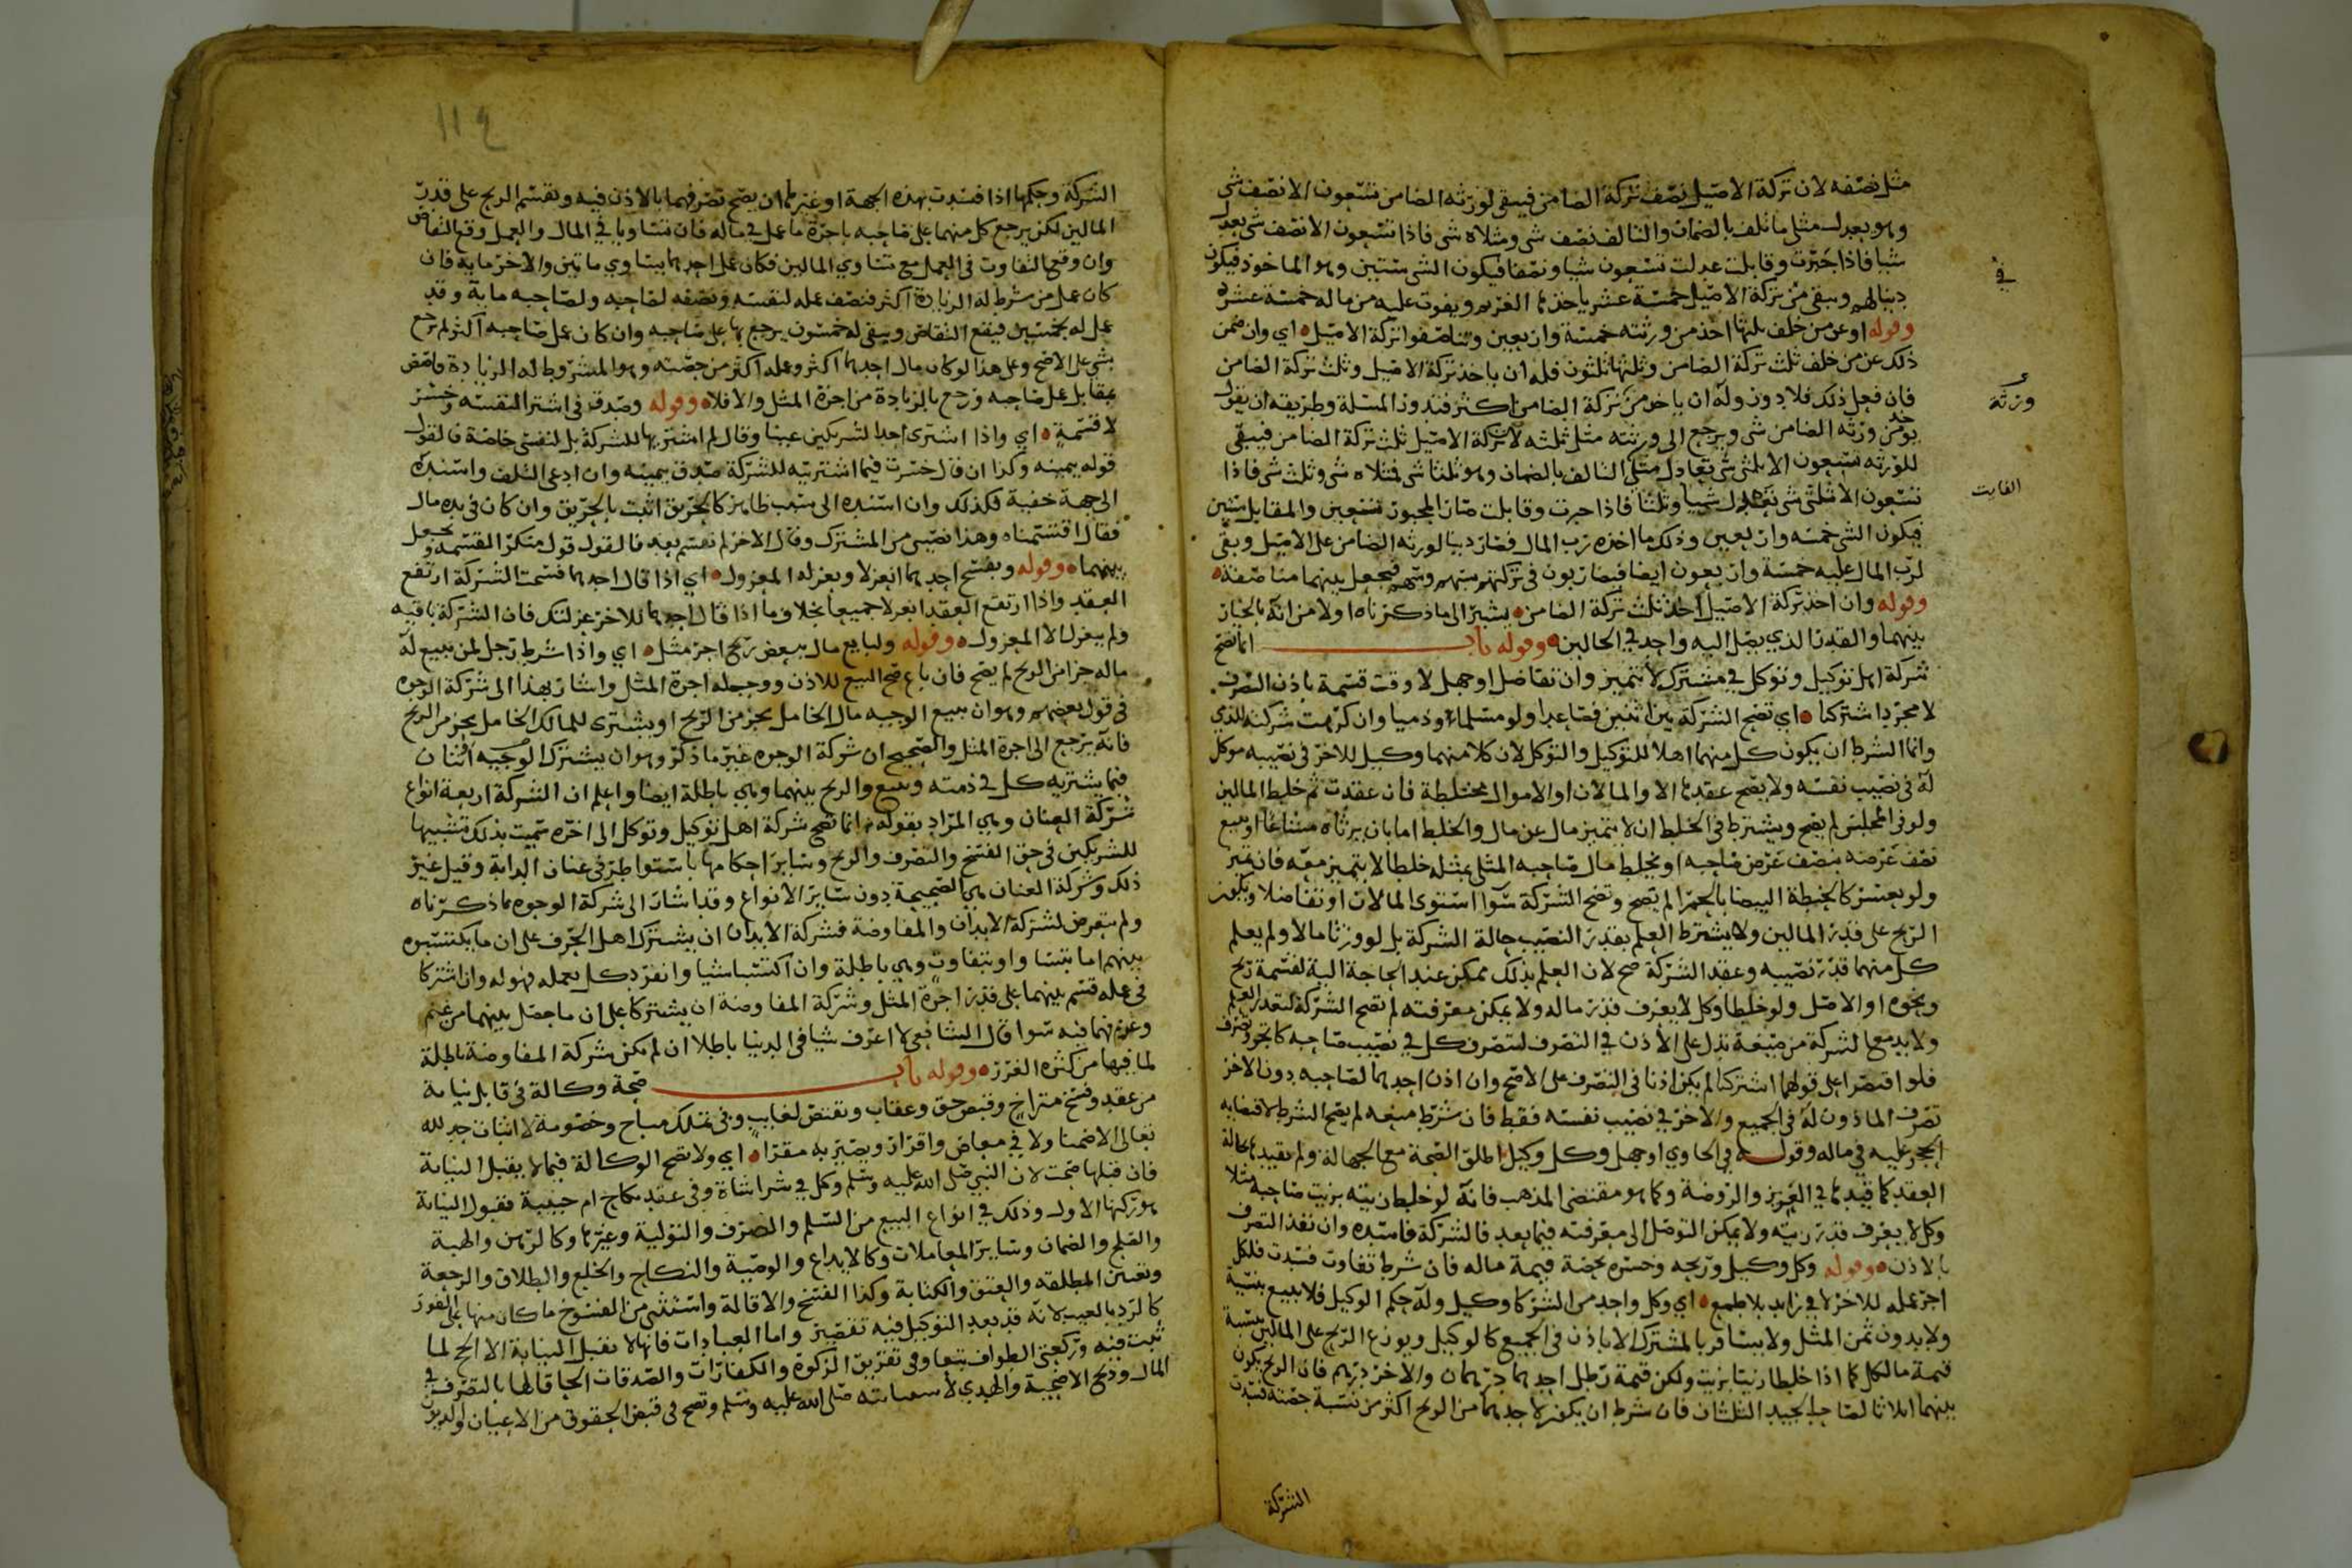 مثل نصفه لان تركة الاصيل نصف تركة الضامن فيبقى لورثه الضامن تسعون الا نصف شي
وهو يعدل مثلي ما تلف بالضمان والتالف نصف شي ومثلاه شي فاذا تسعون الا نصف شي يعدل
شيا فاذا جبرت وقابلت عدلت تسعون شيا ونصفا فيكون الشي ستين وهو الماخوذ فيكون
دينا لهم وبقى من تركة الاصيل خمسة عشر ياخذها الغريم ويفوت عليه من ماله خمسة عشر
في
وقوله او عن من خلف ثلثها اخذ من ورثته خمسة واربعين وتناصفوا تركة الاصيل اي وان ضمن
ذلك عن من خلف ثلث تركة الضامن وثلثها ثلثون فله ان ياخذ تركة الاصيل وثلث تركة الضامن
فان فعل ذلك فلا دور وله ان ياخذ من تركة الضامن اكثر فتدور المسلة وطريقه ان يقول
ورثة
يوخذ من ورثه الضامن شي ويرجع الى ورثته مثل ثلثه لان تركة الاصيل ثلث تركة الضامن فيبقى
للورثه تسعون الا ثلثي شي تعادل مثلي التالف بالضمان وهو ثلثا شي فمثلاه شي وثلث شي فاذا
الفايت
تسعون الا ثلثي شي تعدل شيا وثلثا فاذا جبرت وقابلت صار المجبور تسعين والمقابل شيين
فيكون الشي خمسه واربعين وذلك ما اخذه رب المال فصار دينا لورثه الضامن على الاصيل وبقى
لرب المال عليه خمسة واربعون ايضا فيضاربون في تركته بسهم وسهم فيجعل بينهما مناصفة
وقوله وان اخذ تركة الاصيل اخذ ثلث تركة الضامن يشير الى ما ذكرناه اولا من انه بالخيار
بينهما والقدر الذي يصل اليه واحد في الحالين وقوله باب انما تصح
شركة اهل توكيل وتوكل في مشترك لا يتميز وان تفاضل او جهل لا وقت قسمة باذن التصرف
لا مجرد اشتركنا اي تصح الشركة بين اثنين فصاعدا ولو مسلما وذميا وان كرهت شركته للذي
وانما الشرط ان يكون كل منهما اهلا للتوكيل والتوكل لان كلا منهما وكيل للاخر في نصيبه موكل
له في نصيب نفسه ولا يصح عقدها الا والمالان او الاموال مختلطة فان عقدت ثم خلط المالين
ولو في المجلس لم يصح ويشترط في الخلط ان لا يتميز مال عن مال والخلط اما بان يرثاه مشاعا او يبيع
نصف عرضه بنصف عرض صاحبه او يخلط مال صاحبه المثلي بمثله خلطا لا يتميز معه فان تميز
ولو بعسر كالحنطة البيضا بالحمرا لم يصح وتصح الشركة سوآ استوى المالان او تفاضلا ويكون
الربح على قدر المالين ولا يشترط العلم بقدر النصيب حالة الشركة بل لو ورثا مالا ولم يعلم
كل منهما قدر نصيبه وعقد الشركة صح لان العلم بذلك ممكن عند الحاجة اليه لقسمة ربح
ونحوه او الاصل ولو خلطا وكل لا يعرف قدر ماله ولا يمكن معرفته لم تصح الشركة لتعذر العلم
ولا بد مع الشركة من صيغة تدل على الاذن في التصرف لتصرف كل في نصيب صاحبه كاتجر وتصرف
فلو اقتصرا على قولهما اشتركنا لم يكن اذنا في التصرف على الاصح وان اذن احدهما لصاحبه دون الاخر
تصرف الماذون له في الجميع والاخر في نصيب نفسه فقط فان شرط منعه لم يصح الشرط لاقتضايه
الحجر عليه في ماله وقول في الحاوي او جهل وكل وكيل اطلق الصحة مع الجهالة ولم يقيدها بحالة
العقد كما قيدها في العزيز والروضة وكما هو مقتضى المذهب فانه لو خلط زيته بزيت صاحبه مثلا
وكل لا يعرف قدر زيته ولا يمكن التوصل الى معرفته فيما بعد فالشركة فاسده وان نفذ التصرف
بالاذن وقوله وكل وكيل وربحه وخسره بحصة قيمة ماله فان شرط تفاوت فسدت فلكل
اجر عمله للاخر لا في زايد بلا طمع اي وكل واحد من الشركا وكيل وله حكم الوكيل فلا يبيع بنسية
ولا بدون ثمن المثل ولا يسافر بالمشترك الا باذن في الجميع كالوكيل ويوزع الربح على المالين بنسبة
قيمة مال كل كما اذا خلطا زيتا بزيت ولكن قيمة رطل احدهما درهمان والاخر درهم فان الربح يكون
بينهما اثلاثا لصاحب الجيد الثلثان فان شرط ان يكون لاحدهما من الربح اكثر من نسبة حصته فسدت
الشركة
١١٤
الشركة وحكمها اذا فسدت بهذه الجهة او غيرها ان يصح تصرفهما بالاذن فيه وتقسم الربح على قدر
المالين لكن يرجع كل منهما على صاحبه باجرة ما عمل في ماله فان تساويا في المال والعمل وقع التقاص
وان وقع التفاوت في العمل مع تساوي المالين فكان عمل احدهما يساوي ماتين والاخر ماية فان
كان عمل من شرط له الزيادة اكثر فنصف عمله لنفسه ونصفه لصاحبه ولصاحبه ماية وقد
عمل له بخمسين فيقع التقاص ويبقى له خمسون يرجع بها على صاحبه وان كان عمل صاحبه اكثر لم يرجع
بشي على الاصح وعلى هذا لو كان مال احدهما اكثر وعمله اكثر من حصته وهو المشروط له الزيادة قاصص
بمقابل عمل صاحبه ورجع بالزيادة من اجرة المثل والا فلا وقوله وصدق في اشترا لنفسه وخسر
لا قسمة اي واذا اشترى احد الشريكين عينا وقال لم اشتريها للشركة بل لنفسي خاصة فالقول
قوله بيمينه وكذا ان قال خسرت فيما اشتريته للشركة صدق بيمينه وان ادعى التلف واسنده
الى جهة خفية فكذلك وان اسنده الى سبب ظاهر كالحريق اثبت بالحريق وان كان في يده مال
فقال اقتسمناه وهذا نصيبي من المشترك وقال الاخر لم نقسم بعد فالقول قول منكر القسمة ويجعل
بينهما وقوله وبفسخ احدهما انعزلا وبعزله المعزول اي اذا قال احدهما فسخت الشركة ارتفع
العقد واذا ارتفع العقد انعزلا جميعا بخلاف ما اذا قال احدهما للاخر عزلتك فان الشركة باقيه
ولم ينعزل الا المعزول وقوله ولبايع مال ببعض ربح اجر مثل اي واذا شرط رجل لمن يبيع له
ماله جزا من الربح لم يصح فان باع صح البيع للاذن ووجب له اجرة المثل واشار بهذا الى شركة الوجوه
في قول بعضهم وهو ان يبيع الوجيه مال الخامل بجز من الربح او يشترى للمالك الخامل بجز من الربح
فانه يرجع الى اجرة المثل والصحيح ان شركة الوجوه غير ما ذكر وهو ان يشترك الوجيه اثنان
فيما يشتريه كل في ذمته ويبيع والربح بينهما وهي باطلة ايضا واعلم ان الشركة اربعة انواع
شركة العنان وهي المراد بقوله انما تصح شركة اهل توكيل وتوكل الى اخره سميت بذلك تشبيها
للشريكين في حق الفسخ والتصرف والربح وساير احكامها باستوا طرفي عنان الدابة وقيل غير
ذلك وشركة العنان هي الصحيحة دون ساير الانواع وقد اشار الى شركة الوجوه بما ذكرناه
ولم يتعرض لشركة الابدان والمفاوضة فشركة الابدان ان يشترك اهل الحرف على ان ما يكتسبوه
بينهم اما بتساو او بتفاوت وهي باطلة وان اكتسبا شيا وانفرد كل بعمله فهو له وان اشتركا
في عمله قسم بينهما على قدر اجرة المثل وشركة المفاوضة ان يشتركا على ان ما حصل بينهما من غنم
وغرم فهما فيه سوا قال الشافعي لا اعرف شيا في الدنيا باطلا ان لم يكن شركة المفاوضة باطلة
لما فيها من كثرة الغرر وقوله باب صحة وكالة في قابل نيابة
من عقد وفسخ متراخ وقبض حق وعقاب ونقتص لغايب وفي تملك مباح وخصومة لا اثبات حد لله
تعالى الا ضمنا ولا في معاص واقرار ويصير به مقرا اي ولا تصح الوكالة فيما لا يقبل النيابة
فان قبلها صحت لان النبي صلى الله عليه وسلم وكل في شرا شاة وفي عقد نكاح ام حبيبة فقبول النيابة
هو ركنها الاول وذلك في انواع البيع من السلم والصرف والتولية وغيرها وكالرهن والهبة
والصلح والضمان وساير المعاملات وكالايداع والوصية والنكاح والخلع والطلاق والرجعة
وتعيين المطلقه والعتق والكتابة وكذا الفسخ والاقالة واستثنى من الفسوخ ما كان منها على الفور
كالرد بالعيب لانه قد يعد التوكيل فيه تقصير واما العبادات فانها لا تقبل النيابة الا الحج لما
ثبت فيه وركعتي الطواف تبعا وفي تفريق الزكوة والكفارات والصدقات الحاقا لها بالتصرف في
المال وذبح الاضحية والهدي لاستنابته صلى الله عليه وسلم وتصح في قبض الحقوق من الاعيان والديون